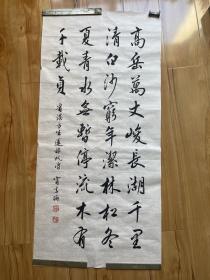 高岳萬丈峻長湖千里
清白沙窮年潔林松冬
夏青水無暫停流木有
千載貞
湛方生還都帆詩